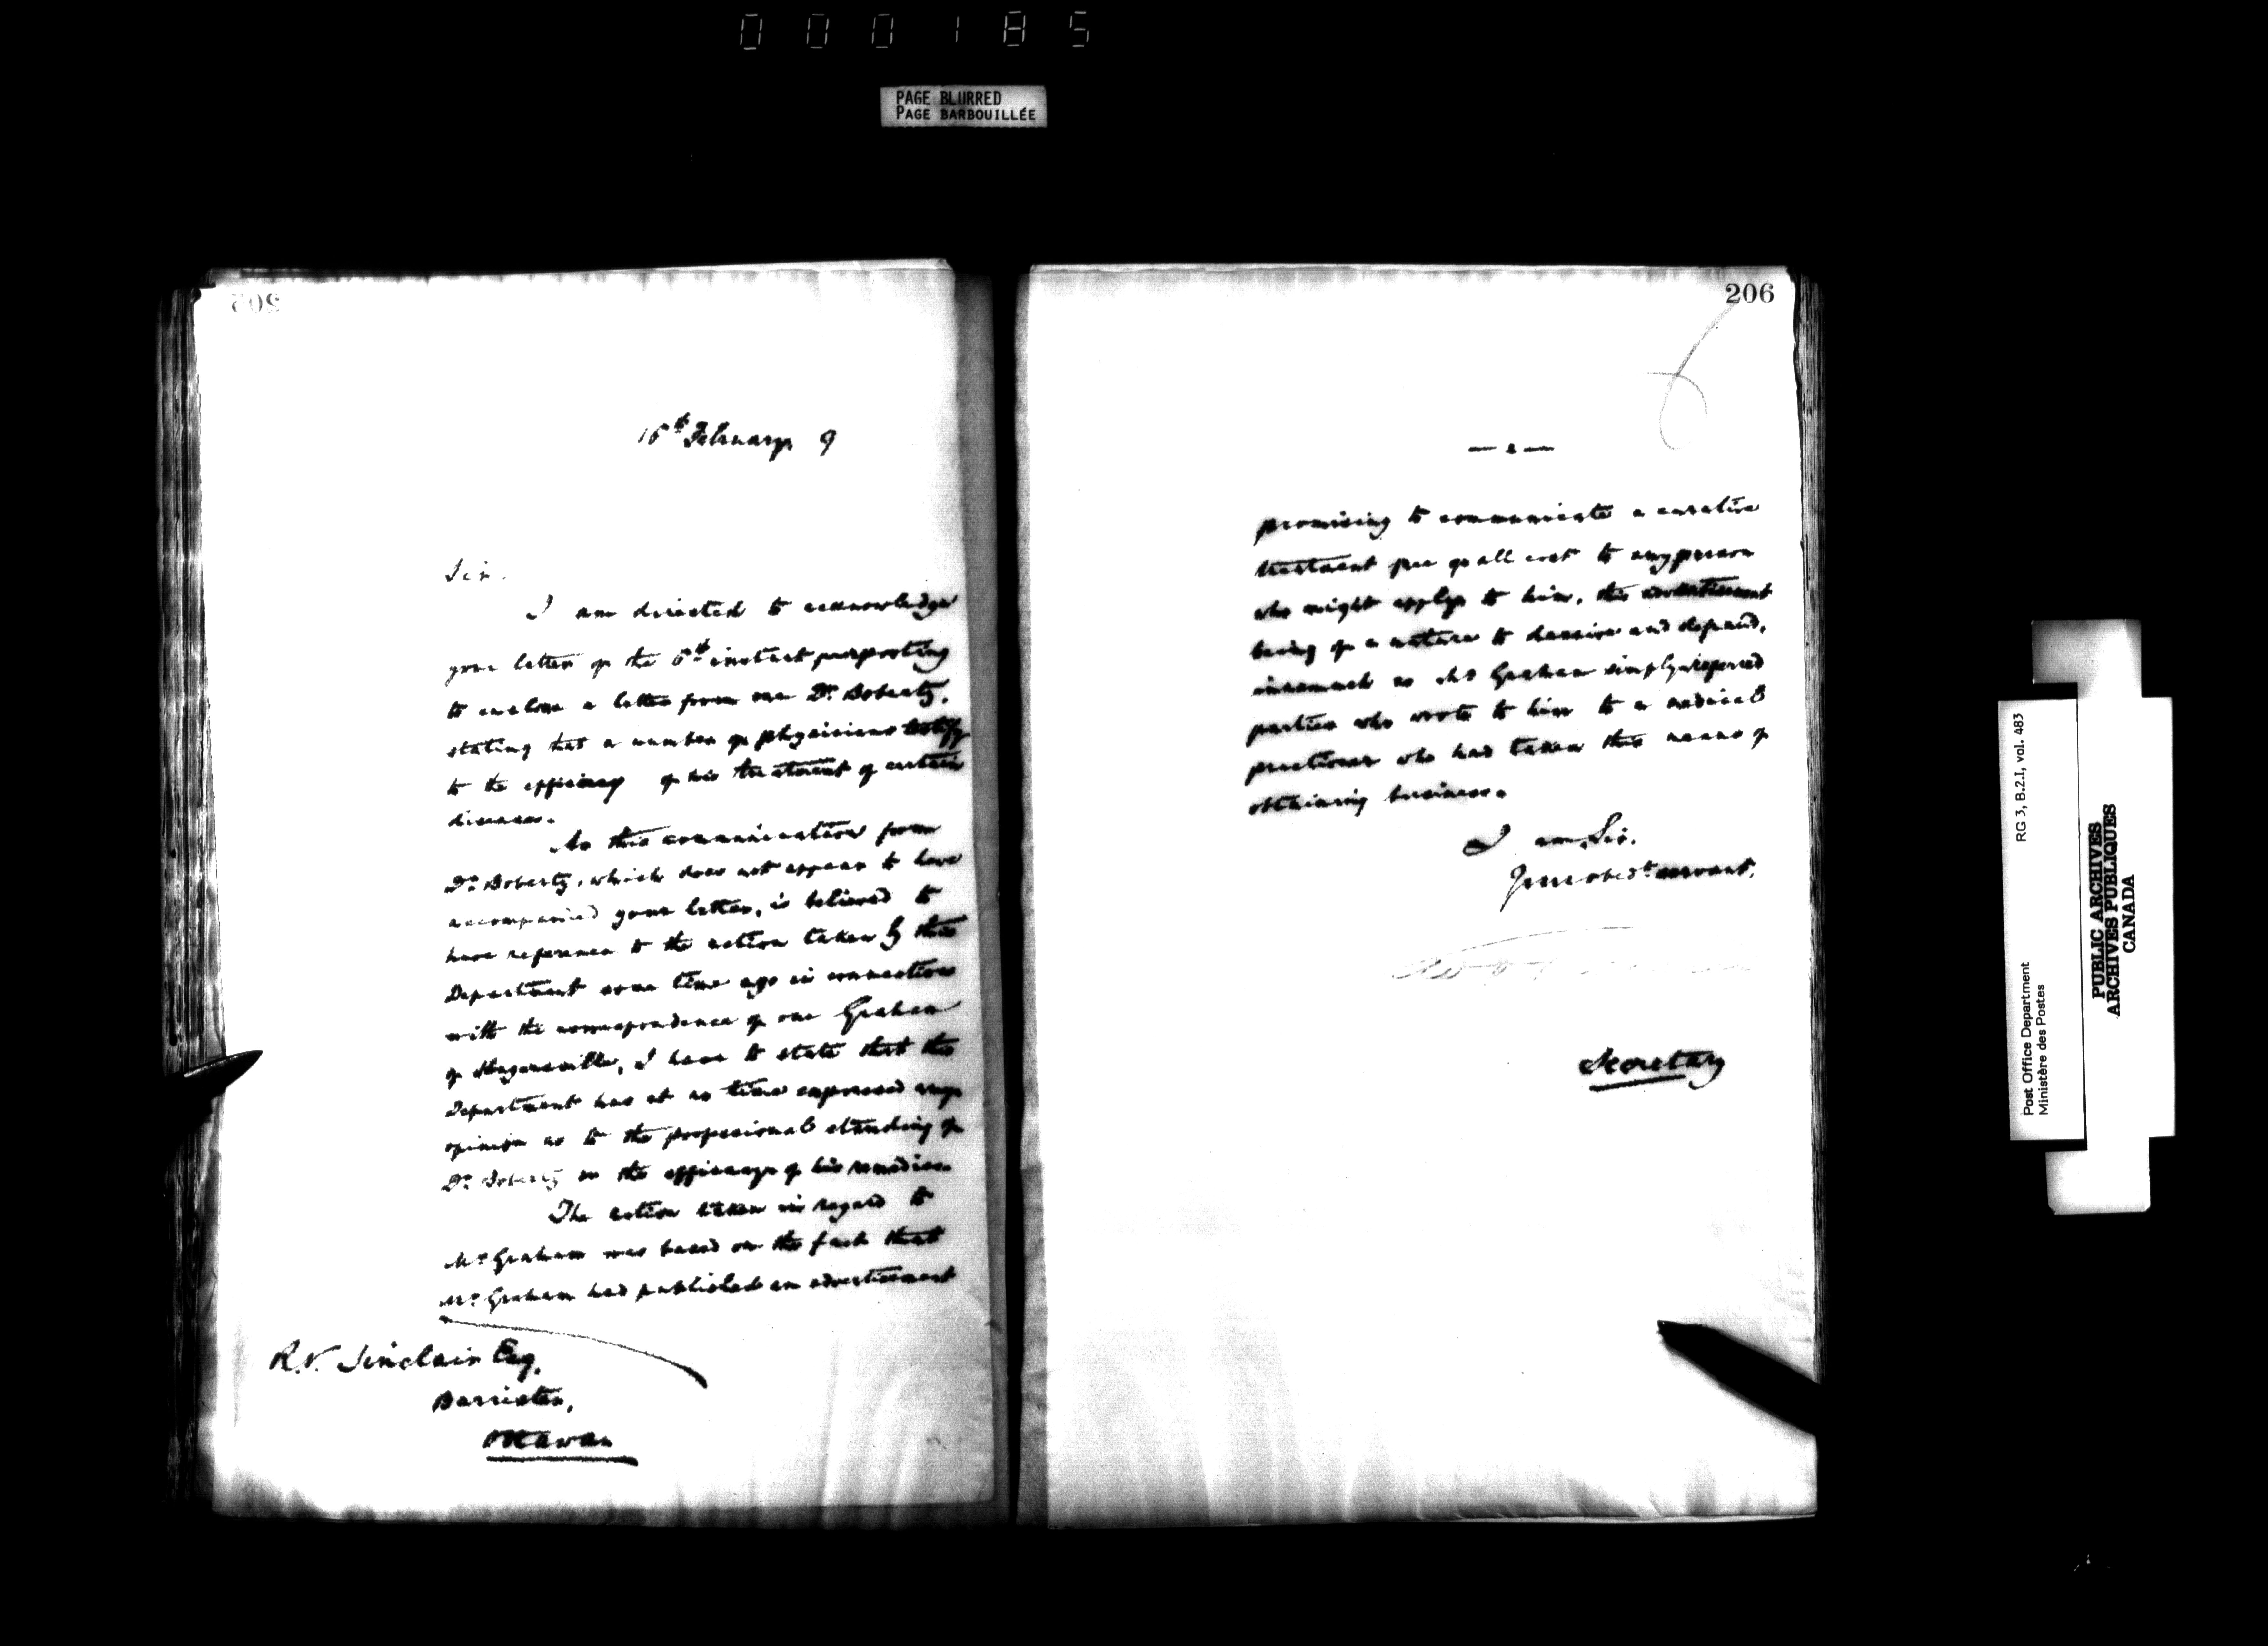 000185
PAGE BLURRED
PAGE BARBOUILLÉE
205
15th February 9
Sir.
I am directed to acknowledge
your letter of the 6th instant purporting
to enclose a letter from one Dr. Doberty,
stating that a number of physicians testify
to the efficacy of his treatment of certain
diseases.
As this communication from
Dr. Doberty, which does not appear to have
accompanied your letter, is believed to
have reference to the action taken by this
Department some time ago in connection
with the correspondence of one Graham
of Hagersville, I have to state that the
Department has at no time expressed any
opinion as to the professional standing of
Dr. Doberty or the efficacy of his remedies.
The action taken in regard to
Mr. Graham was based on the fact that
Mr. Graham had published an advertisement
R.V. Sinclair Esq,
Barrister,
Ottawa
206
— 2 —
promising to communicate a curative
treatment free of all cost to any person
who might apply to him, this advertisement
being of a nature to deceive and defraud,
inasmuch as Mr Graham simply referred
parties who wrote to him to a medical
practioner who had taken this means of
obtaining business.
I am, Sir.
Your obedt servant,
Secretary
RG 3, B.2.I, vol. 483
Post Office Department
Ministère des Postes
PUBLIC ARCHIVES
ARCHIVES PUBLIQUES
CANADA